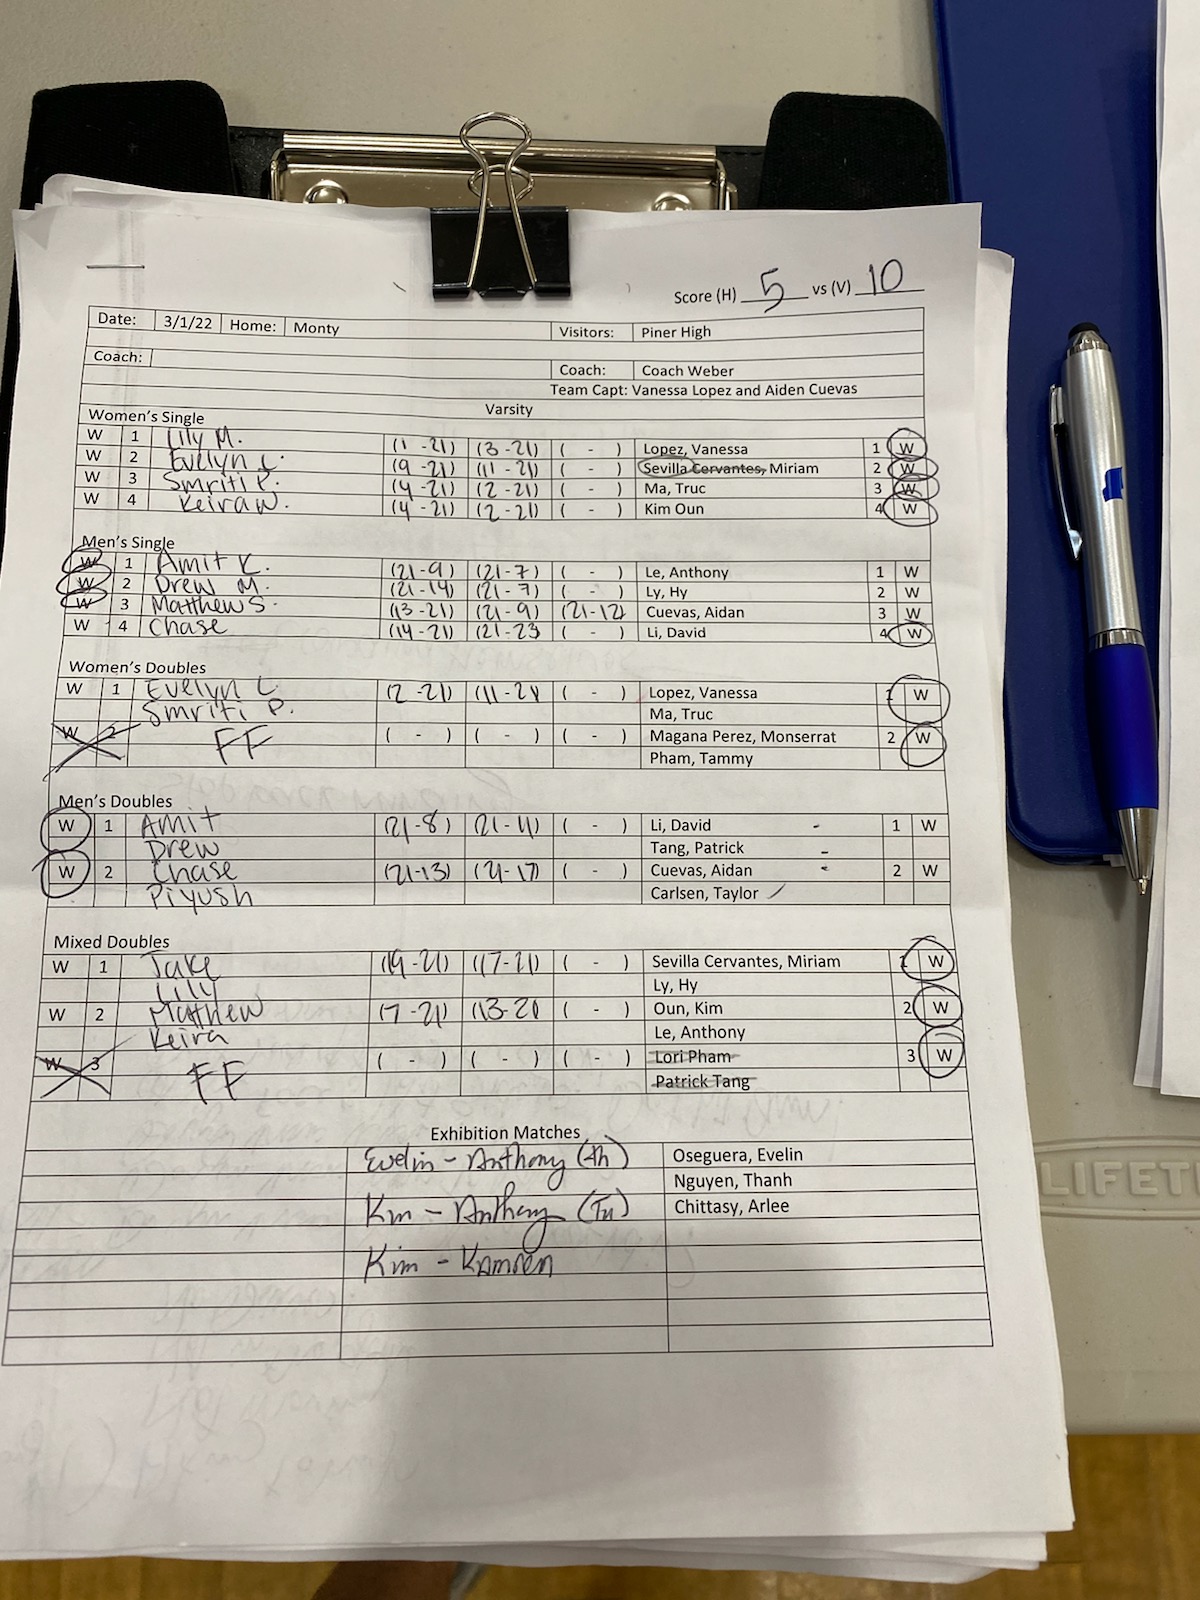 Score (H) 5 vs (V) 10
Date: 3/1/22 Home: Monty Visitors: Piner High
Coach: Coach: Coach Weber
Team Capt: Vanessa Lopez and Aiden Cuevas
Varsity
Women's Single
W 1 Lily M. (1-21) (3-21) ( - ) Lopez, Vanessa 1 W
W 2 Evelyn L. (9-21) (11-21) ( - ) Sevilla Cervantes, Miriam 2 W
W 3 Smriti P. (4-21) (2-21) ( - ) Ma, Truc 3 W
W 4 Keira W. (4-21) (2-21) ( - ) Kim Oun 4 W
Men's Single
W 1 Amit K. (21-9) (21-7) ( - ) Le, Anthony 1 W
W 2 Drew M. (21-14) (21-7) ( - ) Ly, Hy 2 W
W 3 Matthew S. (13-21) (21-9) (21-12) Cuevas, Aidan 3 W
W 4 Chase (14-21) (21-23 ( - ) Li, David 4 W
Women's Doubles
W 1 Evelyn L. (2-21) (11-21) ( - ) Lopez, Vanessa 1 W
Smriti P. Ma, Truc
W 2 FF ( - ) ( - ) ( - ) Magana Perez, Monserrat 2 W
Pham, Tammy
Men's Doubles
W 1 Amit (21-8) (21-11) ( - ) Li, David - 1 W
Drew Tang, Patrick -
W 2 Chase (21-13) (21-17) ( - ) Cuevas, Aidan - 2 W
Piyush Carlsen, Taylor
Mixed Doubles
W 1 Jake (19-21) (17-21) ( - ) Sevilla Cervantes, Miriam 1 W
Lily Ly, Hy
W 2 Matthew (7-21) (13-21) ( - ) Oun, Kim 2 W
Keira Le, Anthony
W 3 FF ( - ) ( - ) ( - ) Lori Pham 3 W
Patrick Tang
Exhibition Matches
Evelin - Anthony (Th) Oseguera, Evelin
Nguyen, Thanh
Kim - Anthony (Tu) Chittasy, Arlee
Kim -
LIFETI